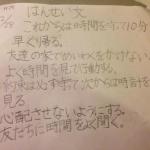 はんせい文
これからは時間を守って10分
早く帰る。
友達の家でめいわくをかけない
よく時間を見て行動する。
約束は必ず守て次からは時計を
見る
心配させないようにする。
友だちに時間をよく聞く。